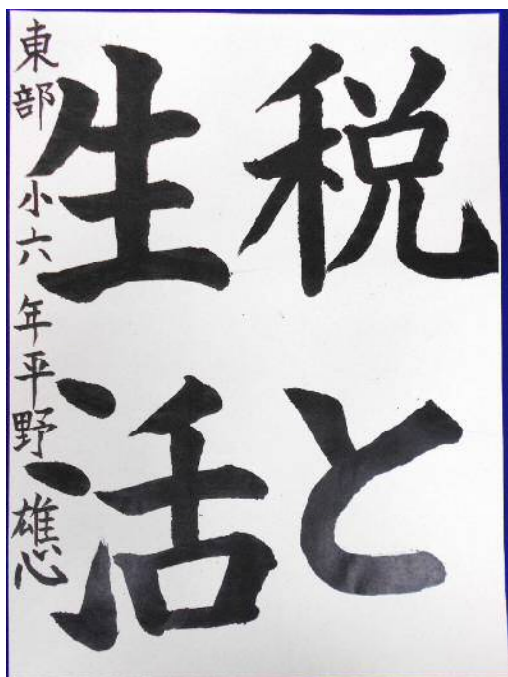 税と
生活
東部小六年平野雄心